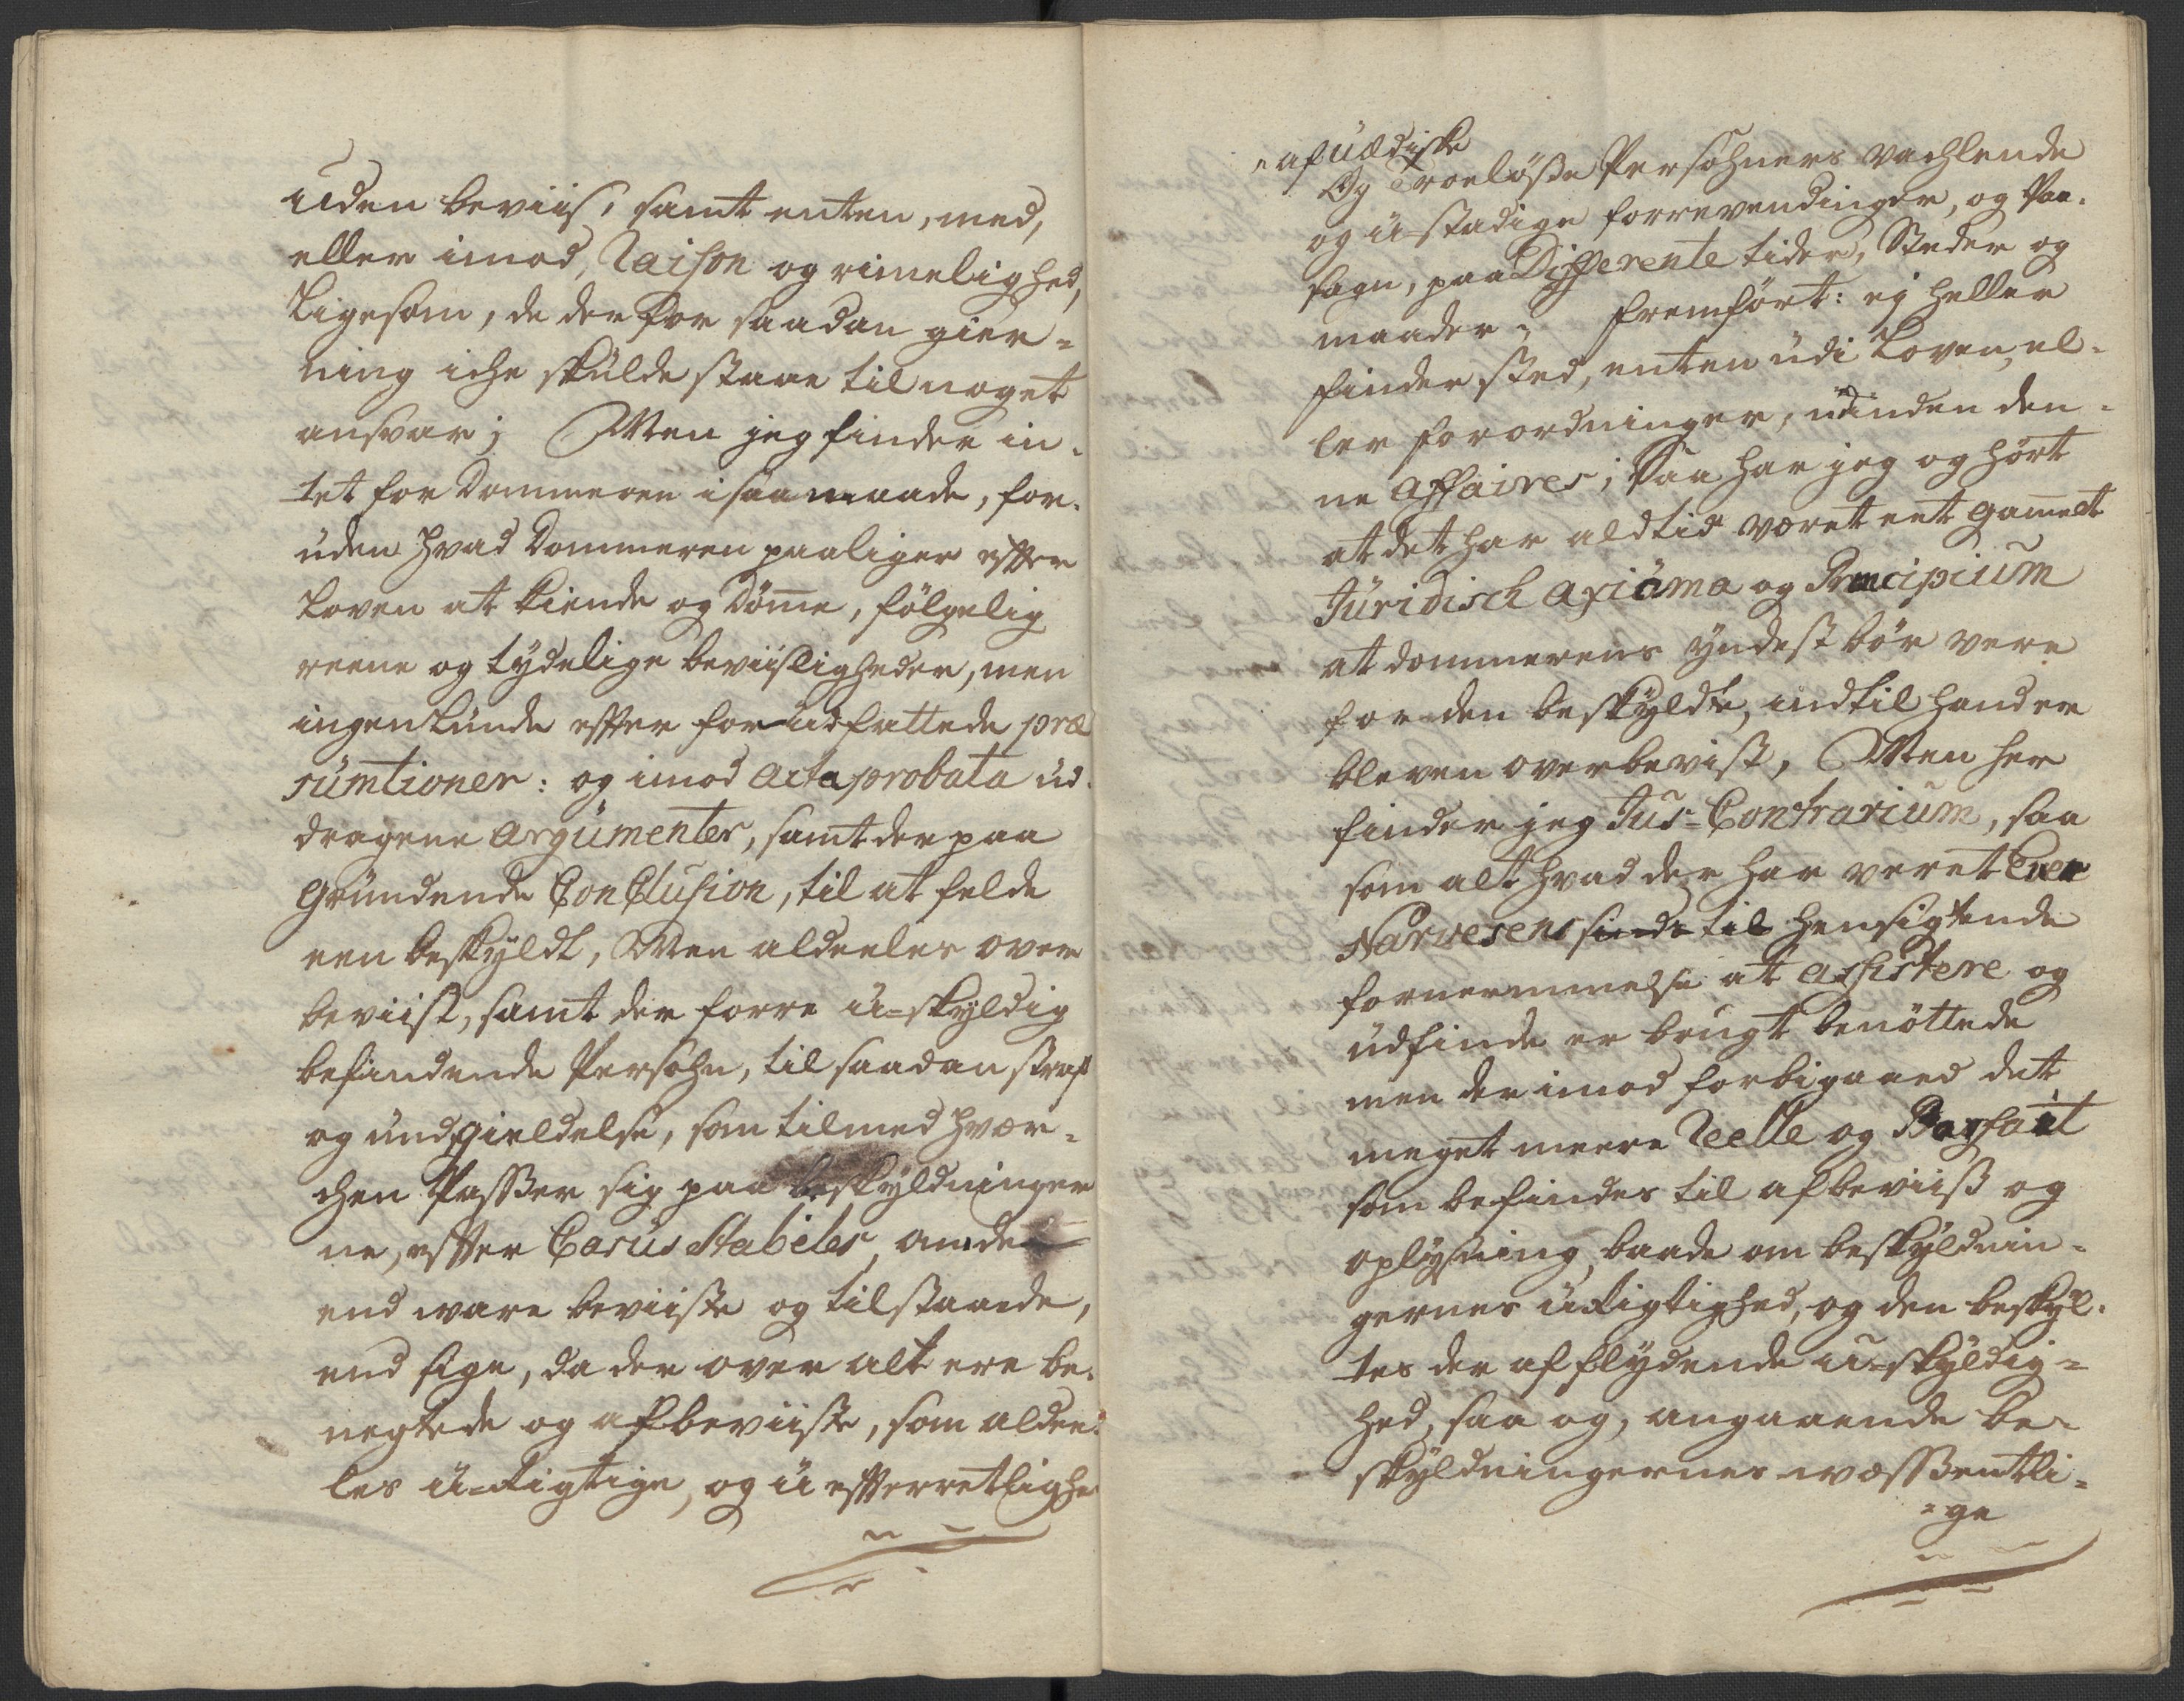 uden beviis, samt enten, med,
eller imod, Raison og rimelighed,
Ligesom, de der for saadan gier-
ning iche skulde staae til noget
ansvar; Men jeg finder in-
tet for Dommeren i saa maade, for-
uden hvad Dommeren paaligger efter
Loven at kiende og Dömme, fölgelig
reene og tydelige beviisligheder, men
ingenlunde efter forudfattede præ
sumtioner: og imod acta probata ud-
dragene argumenter, samt der paa
Grundende Conclusion, til at felde
een beskyldt, Men aldeeles over
beviist, samt der forre u-skyldig
befindende Persohn, til saadan straf
og undgieldelse, som tilmed hver-
chen Passer sig paa beskyldninger
ne, efter Carus Stabeles, om de
end ware beviiste og tilstaaede,
end sige, da der over alt ere be-
negtede og afbeviiste, som aldee-
les u-rigtige, og u efterretlighe
af uædiske
Og Troelöse Persohners vachlende
og u-stadige forrevendinger, og Paa-
sagn, paa Differente tider, Steder og
maader, fremfört: ej heller
finder sted, enten udi Loven, el-
ler forordninger, udinden den-
ne Affaires; Saa har jeg og hört
at det har aldtid været eet gammelt
Juridisch axioma og Principium
at dommerens yndest bör vere
for den beskyldte, indtil hand er
bleven overbevist, Men her
finder jeg Jus-Contrarium, saa
som alt hvad der har veret Even
Narvesens til hensigtende
fornermmelse at assistere og
udfinde er brugt benöttede
men der imod forbigaaed det
meget meere Reelle og Parfait
som befindes til afbeviis og
oplysning, baade om beskyldnin-
gernes urigtighed, og den beskyl-
tes der af flydende u-skyldig-
hed, saa og, angaaende be-
skyldningernes wæssentli-
-ge